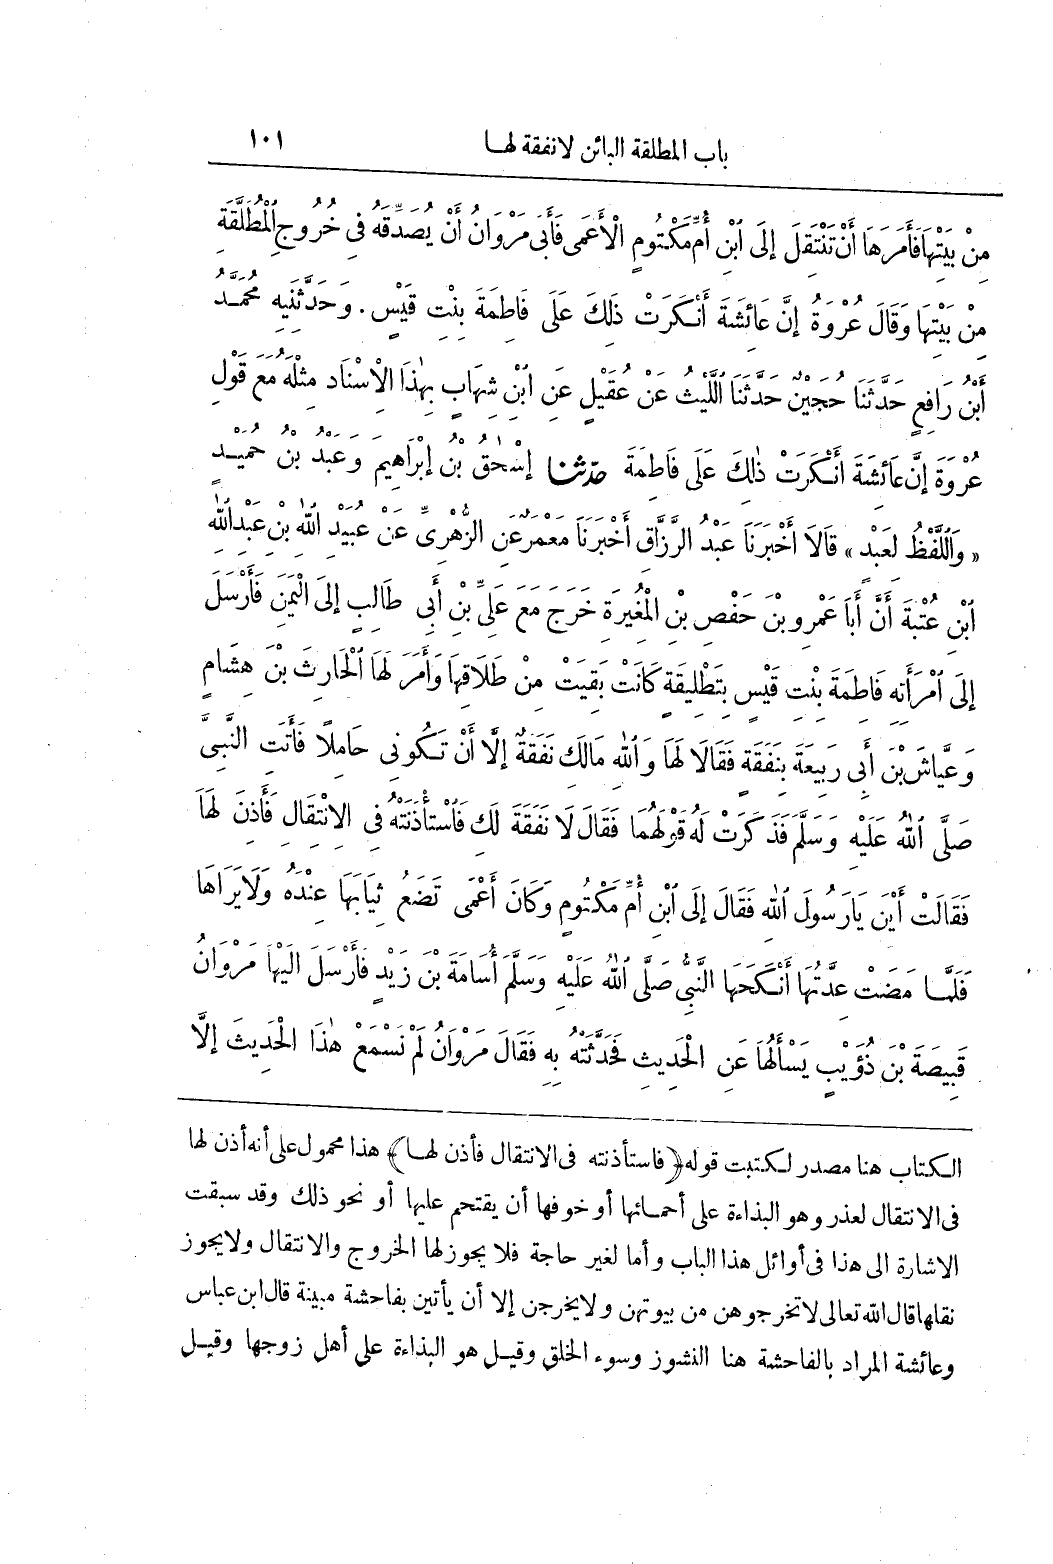 باب المطلقة البائن لا نفقة لهـا ١٠١
مِنْ بَيْتِهَا فَأَمَرَهَا أَنْ تَنْتَقِلَ إِلَى ٱبْنِ أُمِّ مَكْتُومٍ الْأَعْمَى فَأَبَى مَرْوَانُ أَنْ يُصَدِّقَهُ فِى خُرُوجِ الْمُطَلَّقَةِ
مِنْ بَيْتِهَا وَقَالَ عُرْوَةُ إِنَّ عَائِشَةَ أَنْكَرَتْ ذَلِكَ عَلَى فَاطِمَةَ بِنْتِ قَيْسٍ . وَحَدَّثَنِيهِ مُحَمَّدُ
ٱبْنُ رَافِعٍ حَدَّثَنَا حُجَيْنٌ حَدَّثَنَا اللَّيْثُ عَنْ عُقَيْلٍ عَنِ ٱبْنِ شِهَابٍ بِهٰذَا الْاِسْنَادِ مِثْلَهُ مَعَ قَوْلِ
عُرْوَةَ إِنَّ عَائِشَةَ أَنْكَرَتْ ذٰلِكَ عَلَى فَاطِمَةَ حدّثنا إِسْحٰقُ بْنُ إِبْرَاهِيمَ وَعَبْدُ بْنُ حُمَيْدٍ
« وَاللَّفْظُ لِعَبْدٍ » قَالَا أَخْبَرَنَا عَبْدُ الرَّزَّاقِ أَخْبَرَنَا مَعْمَرٌ عَنِ الزُّهْرِىِّ عَنْ عُبَيْدِ اللّٰهِ بْنِ عَبْدِ اللّٰهِ
ٱبْنِ عُتْبَةَ أَنَّ أَبَا عَمْرِو بْنَ حَفْصِ بْنِ الْمُغِيرَةِ خَرَجَ مَعَ عَلِىِّ بْنِ أَبِى طَالِبٍ إِلَى الْيَمَنِ فَأَرْسَلَ
إِلَى ٱمْرَأَتِهِ فَاطِمَةَ بِنْتِ قَيْسٍ بِتَطْلِيقَةٍ كَانَتْ بَقِيَتْ مِنْ طَلَاقِهَا وَأَمَرَ لَهَا الْحَارِثَ بْنَ هِشَامٍ
وَعَيَّاشَ بْنَ أَبِى رَبِيعَةَ بِنَفَقَةٍ فَقَالَا لَهَا وَاللّٰهِ مَالَكِ نَفَقَةٌ إِلَّا أَنْ تَكُونِى حَامِلًا فَأَتَتِ النَّبِىَّ
صَلَّى اللّٰهُ عَلَيْهِ وَسَلَّمَ فَذَكَرَتْ لَهُ قَوْلَهُمَا فَقَالَ لَا نَفَقَةَ لَكِ فَٱسْتَأْذَنَتْهُ فِى الِانْتِقَالِ فَأَذِنَ لَهَا
فَقَالَتْ أَيْنَ يَا رَسُولَ اللّٰهِ فَقَالَ إِلَى ٱبْنِ أُمِّ مَكْتُومٍ وَكَانَ أَعْمَى تَضَعُ ثِيَابَهَا عِنْدَهُ وَلَا يَرَاهَا
فَلَمَّا مَضَتْ عِدَّتُهَا أَنْكَحَهَا النَّبِىُّ صَلَّى اللّٰهُ عَلَيْهِ وَسَلَّمَ أُسَامَةَ بْنَ زَيْدٍ فَأَرْسَلَ الَيْهَا مَرْوَانُ
قَبِيصَةَ بْنَ ذُؤَيْبٍ يَسْأَلُهَا عَنِ الْحَدِيثِ فَحَدَّثَتْهُ بِهِ فَقَالَ مَرْوَانُ لَمْ نَسْمَعْ هٰذَا الْحَدِيثَ إِلَّا
الكتاب هنا مصدر لكتبت قوله ﴿فاستأذنته فى الانتقال فأذن لهـا﴾ هذا محمول على أنه أذن لها
فى الانتقال لعذر وهو البذاءة على أحمـائها أو خوفها أن يقتحم عليها أو نحو ذلك وقد سبقت
الاشارة الى هذا فى أوائل هذا الباب وأما لغير حاجة فلا يجوز لها الخروج والانتقال ولا يجوز
نقلها قال الله تعالى لا تخرجوهن من بيوتهن ولا يخرجن إلا أن يأتين بفاحشة مبينة قال ابن عباس
وعائشة المراد بالفاحشة هنا النشوز وسوء الخلق وقيـل هو البذاءة على أهل زوجها وقيـل